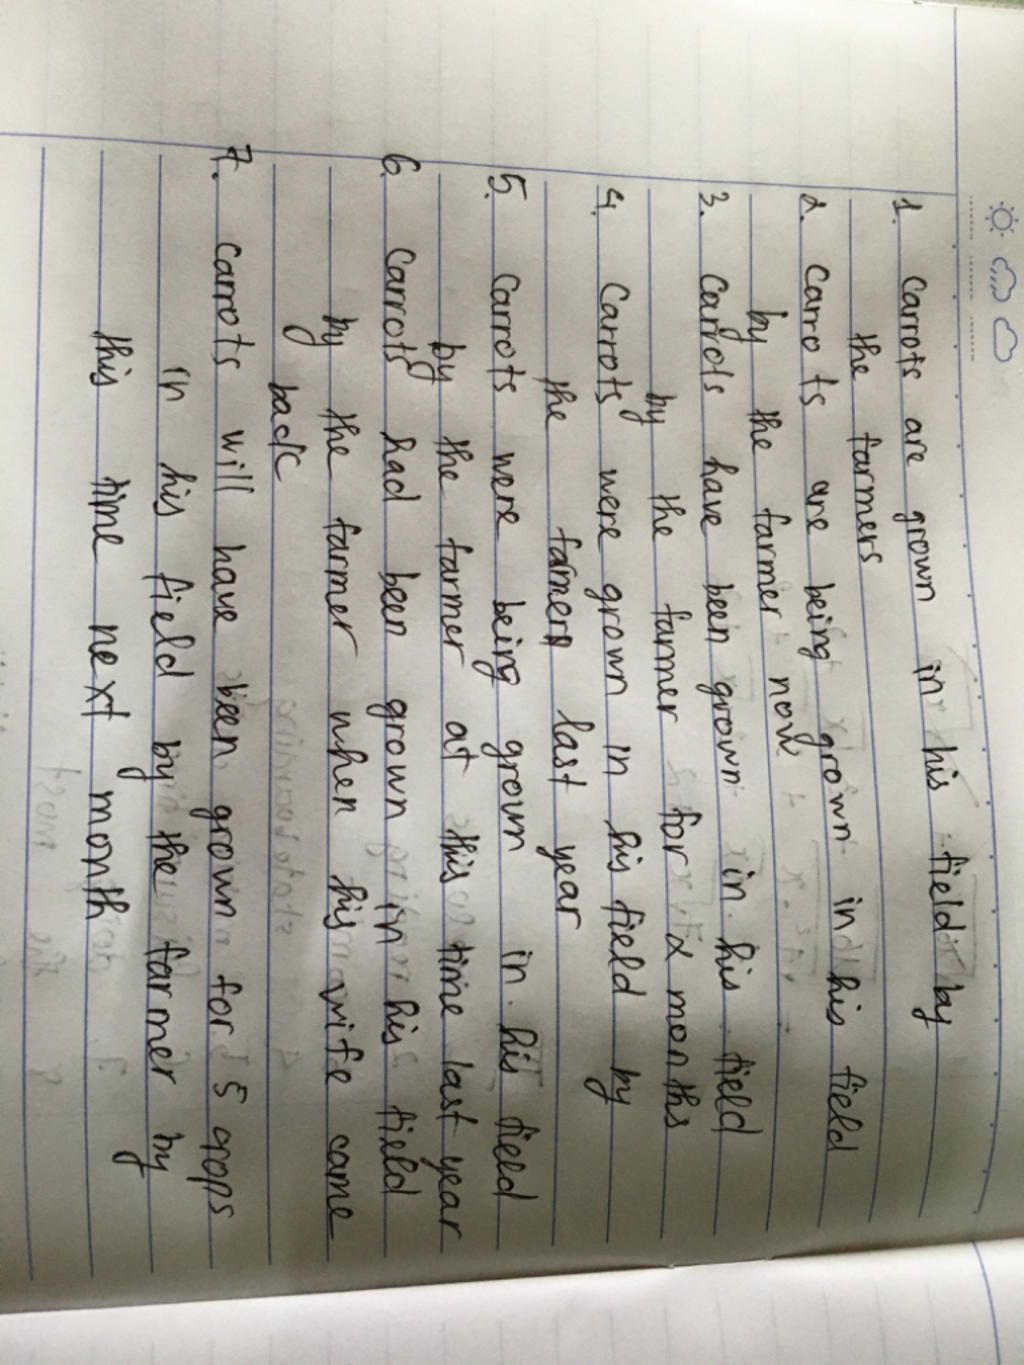 1. Carrots are grown in his field by
the farmers
2. Carrots are being grown in his field
by the farmer now
3. Carrots have been grown in his field
by the farmer for 2 months
4. Carrots were grown in his field by
the farmer last year
5. Carrots were being grown in his field
by the farmer at this time last year
6. Carrots had been grown in his field
by the farmer when his wife came
back
7. Carrots will have been grown for 5 crops
in his field by the farmer by
this time next month